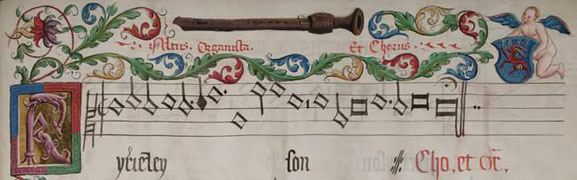 Altus Organista Et Chorus
Kyrieeley son Cho, et or,